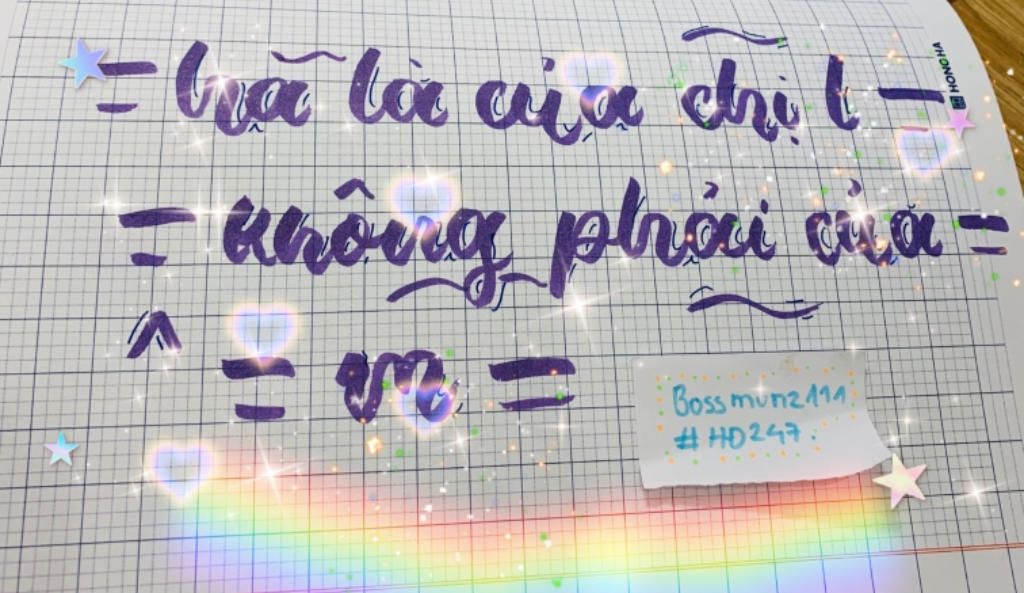 = hạ là của chị l =
HONGHA
= không phải của =
= m =
Bossmunz111
#HD247.